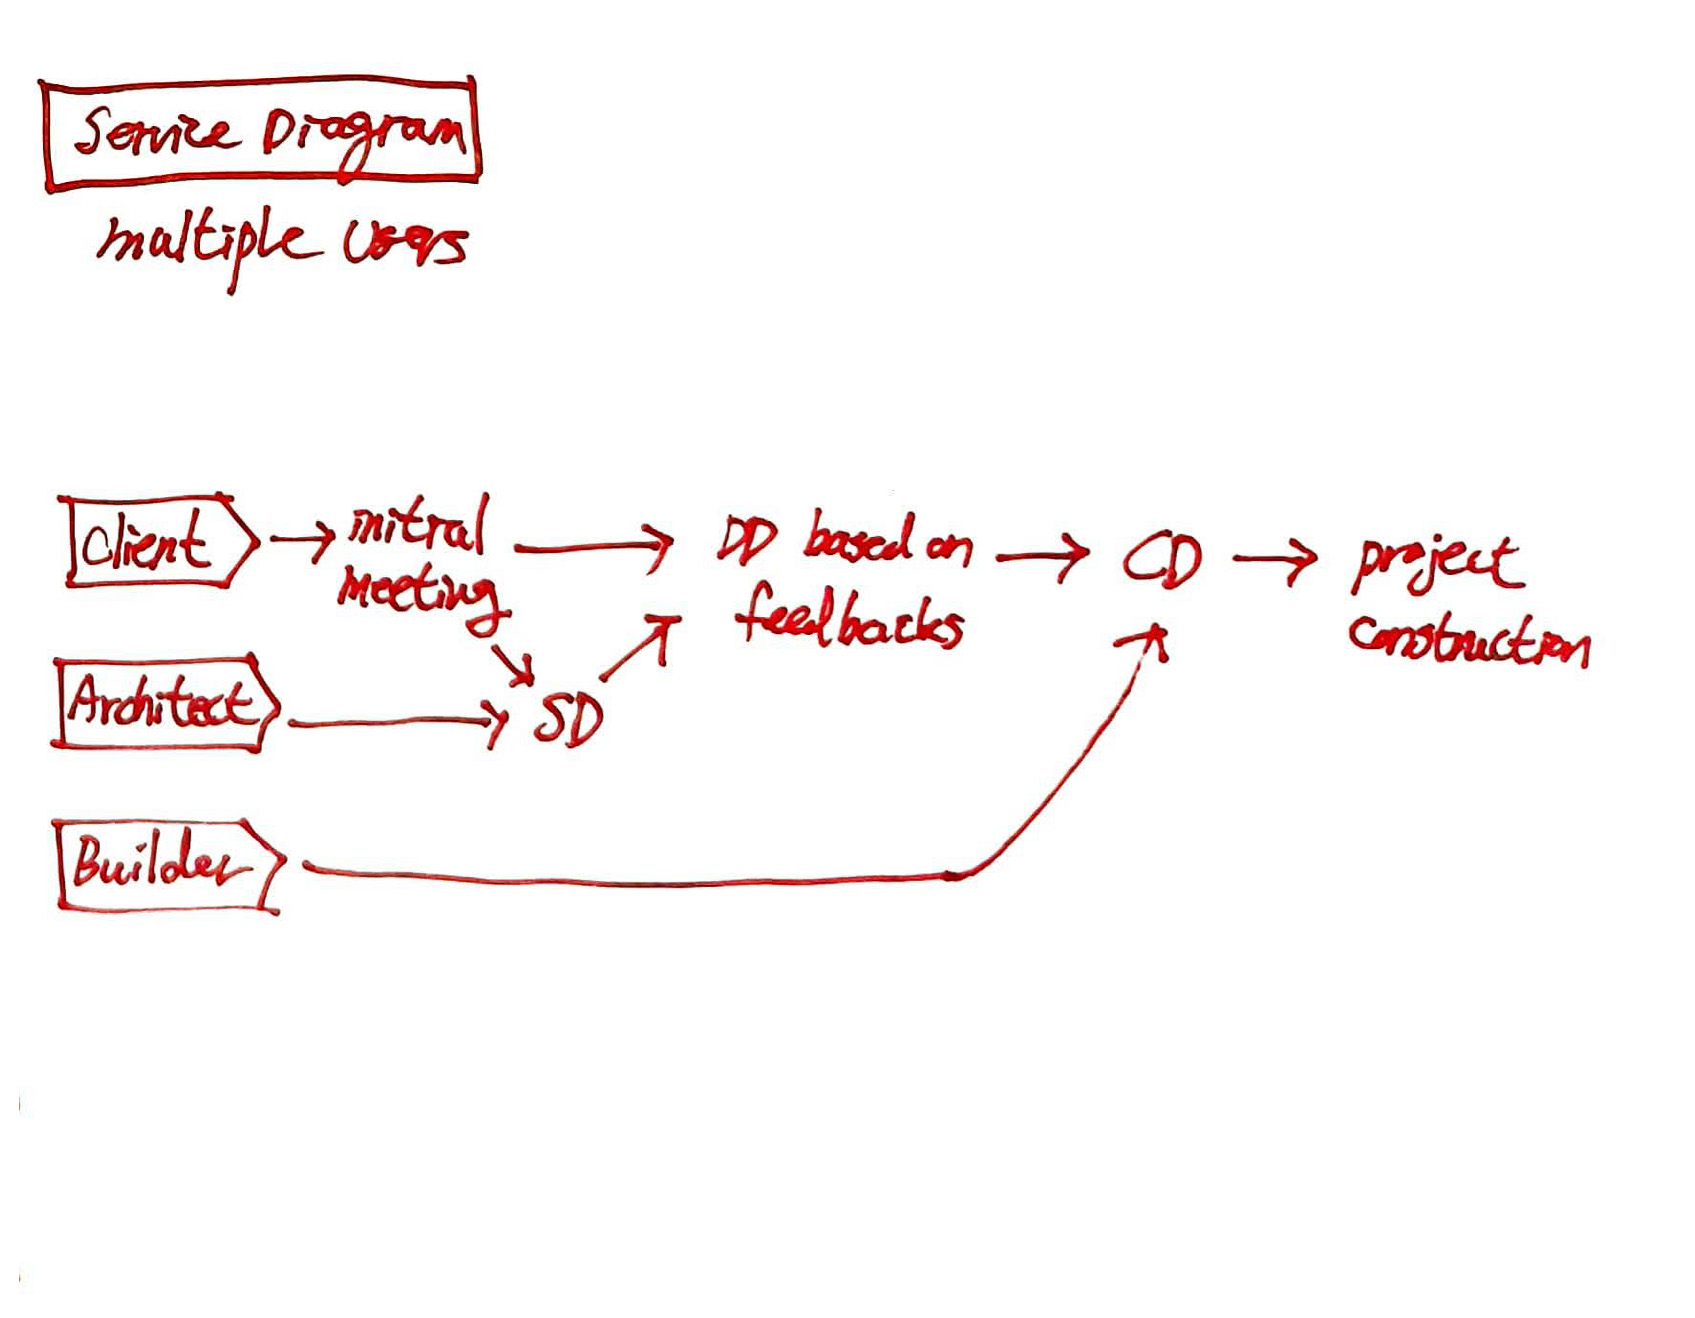 Service Diagram
multiple users
Client
initial
meeting
DD based on
feedbacks
CD
project
construction
Architect
SD
Builder